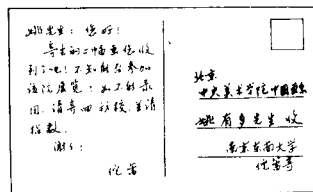 姚先生：您好！
寄去的二幅画您收
到了吧！不知能否参加
该院展览：如不能录
用，请寄回我校，并请
指教。
谢谢！
倪芳
北京
中央美术学院中国画系
姚有多先生 收
南京东南大学
倪芳寄